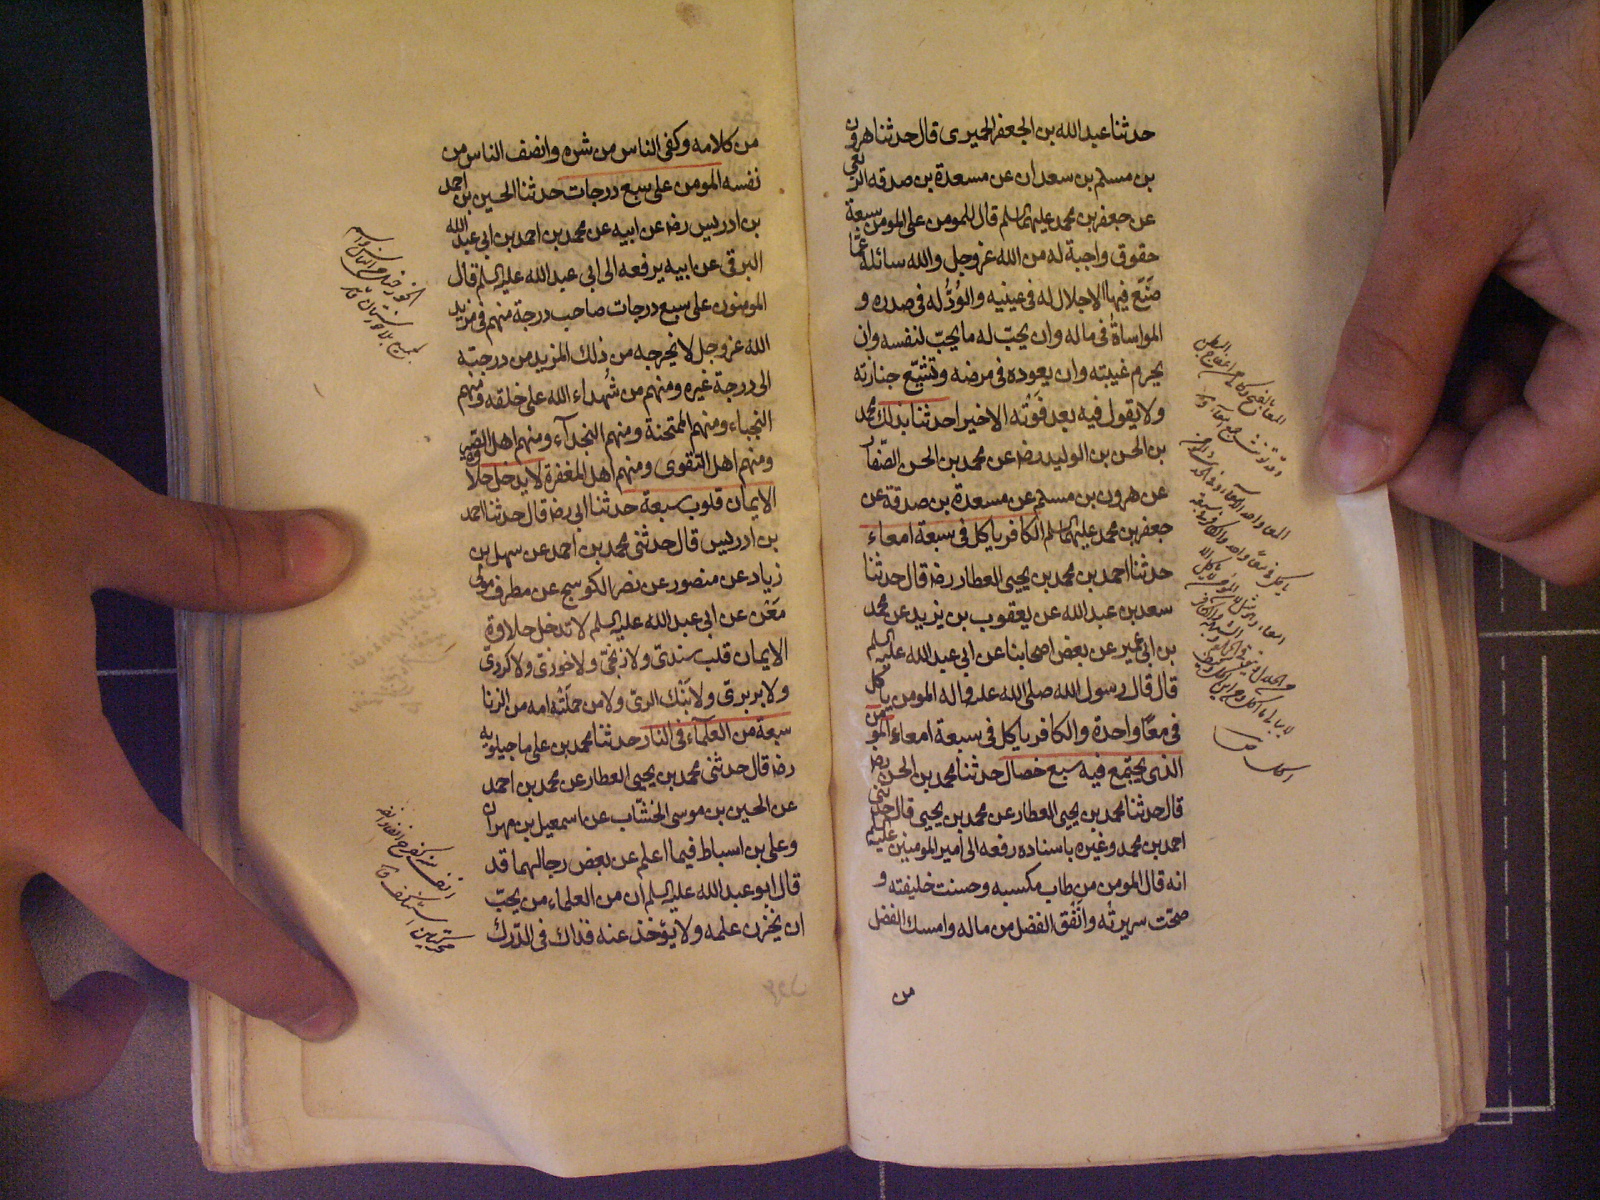 حدثنا عبد الله بن الجعفر الحميرى قال حدثنا هرون
بن مسلم بن سعدان عن مسعدة بن صدقه الربعى
عن جعفر بن محمد عليهما السلم قال للمومن على المومن سبعة
حقوق واجبة له من الله عز وجل والله سائله عمّا
صَنَع فيها الاجلال له فى عينيه والوُدّ له فى صدره و
المواساة فى ماله وان يحبّ له ما يحبّ لنفسه وان
يحرم غيبته وان يعوده فى مرضه وتشييع جنازته
ولا يقول فيه بعد فَوْتِه الا خيرا حدثنا بذلك محمد
بن الحسن بن الوليد رضه عن محمد بن الحسن الصّفار
عن هرون بن مسلم عن مسعدة بن صدقة عن
جعفر بن محمد عليهما السلم الكافر ياكل فى سبعة امعاء
حدثنا احمد بن محمد بن يحيى العطار رضه قال حدثنا
سعد بن عبد الله عن يعقوب بن يزيد عن محمد
بن ابى عمير عن بعض اصحابنا عن ابى عبد الله عليه السلم
قال قال رسول الله صلى الله عليه واله المومن ياكل
فى معًا واحدة والكافر ياكل فى سبعة امعاء المومن
الذى يجتمع فيه سبع خصال حدثنا محمد بن الحسن رضه
قال حدثنا محمد بن يحيى العطار عن محمد بن يحيى قال حدثنى
احمد بن محمد وغيره باسناده رفعه الى امير المومنين عليه السلم
انه قال المومن من طاب مكسبه وحسنت خليقته و
صحّت سريرتُه وانفق الفضل من ماله وامسك الفضل
من
من كلامه وكفى الناس من شره وانصف الناس من
نفسه المومن على سبع درجات حدثنا الحسين بن احمد
بن ادريس رضه عن ابيه عن محمد بن احمد بن ابى عبد الله
البرقى عن ابيه يرفعه الى ابى عبد الله عليه السلم قال
المومنون على سبع درجات صاحب درجة منهم فى مزيد
الله عز وجل لا يخرجه من ذلك المزيد من درجته
الى درجة غيره ومنهم من شُهداء الله على خلقه ومنهم
النجباء ومنهم الممتحنة ومنهم النجدآء ومنهم اهل الصبر
ومنهم اهل التقوى ومنهم اهل المغفرة لا يدخل حلاوة
الايمان قلوب سبعة حدثنا ابى رضه قال حدثنا احمد
بن ادريس قال حدثنى محمد بن احمد عن سهل بن
زياد عن منصور عن نصر الكوسج عن مطرف مولى
مَعْن عن ابى عبد الله عليه السلم لا تدخل حلاوة
الايمان قلب سندىّ ولا زنجىّ ولا خوزىّ ولا كردىّ
ولا بربرىّ ولا نَبْك الرىّ ولا من حَمَلَتْه امه من الزنا
سبعة من العلمآء فى النار حدثنا محمد بن على ماجيلويه
رضه قال حدثنى محمد بن يحيى العطار عن محمد بن احمد
عن الحسين بن موسى الخشّاب عن اسمعيل بن مهران
وعلى بن اسباط فيما اعلم عن بعض رجالهما قد
قال ابو عبد الله عليه السلم ان من العلماء من يحبّ
ان يخزن علمه ولا يؤخذ عنه فذاك فى الدّرك